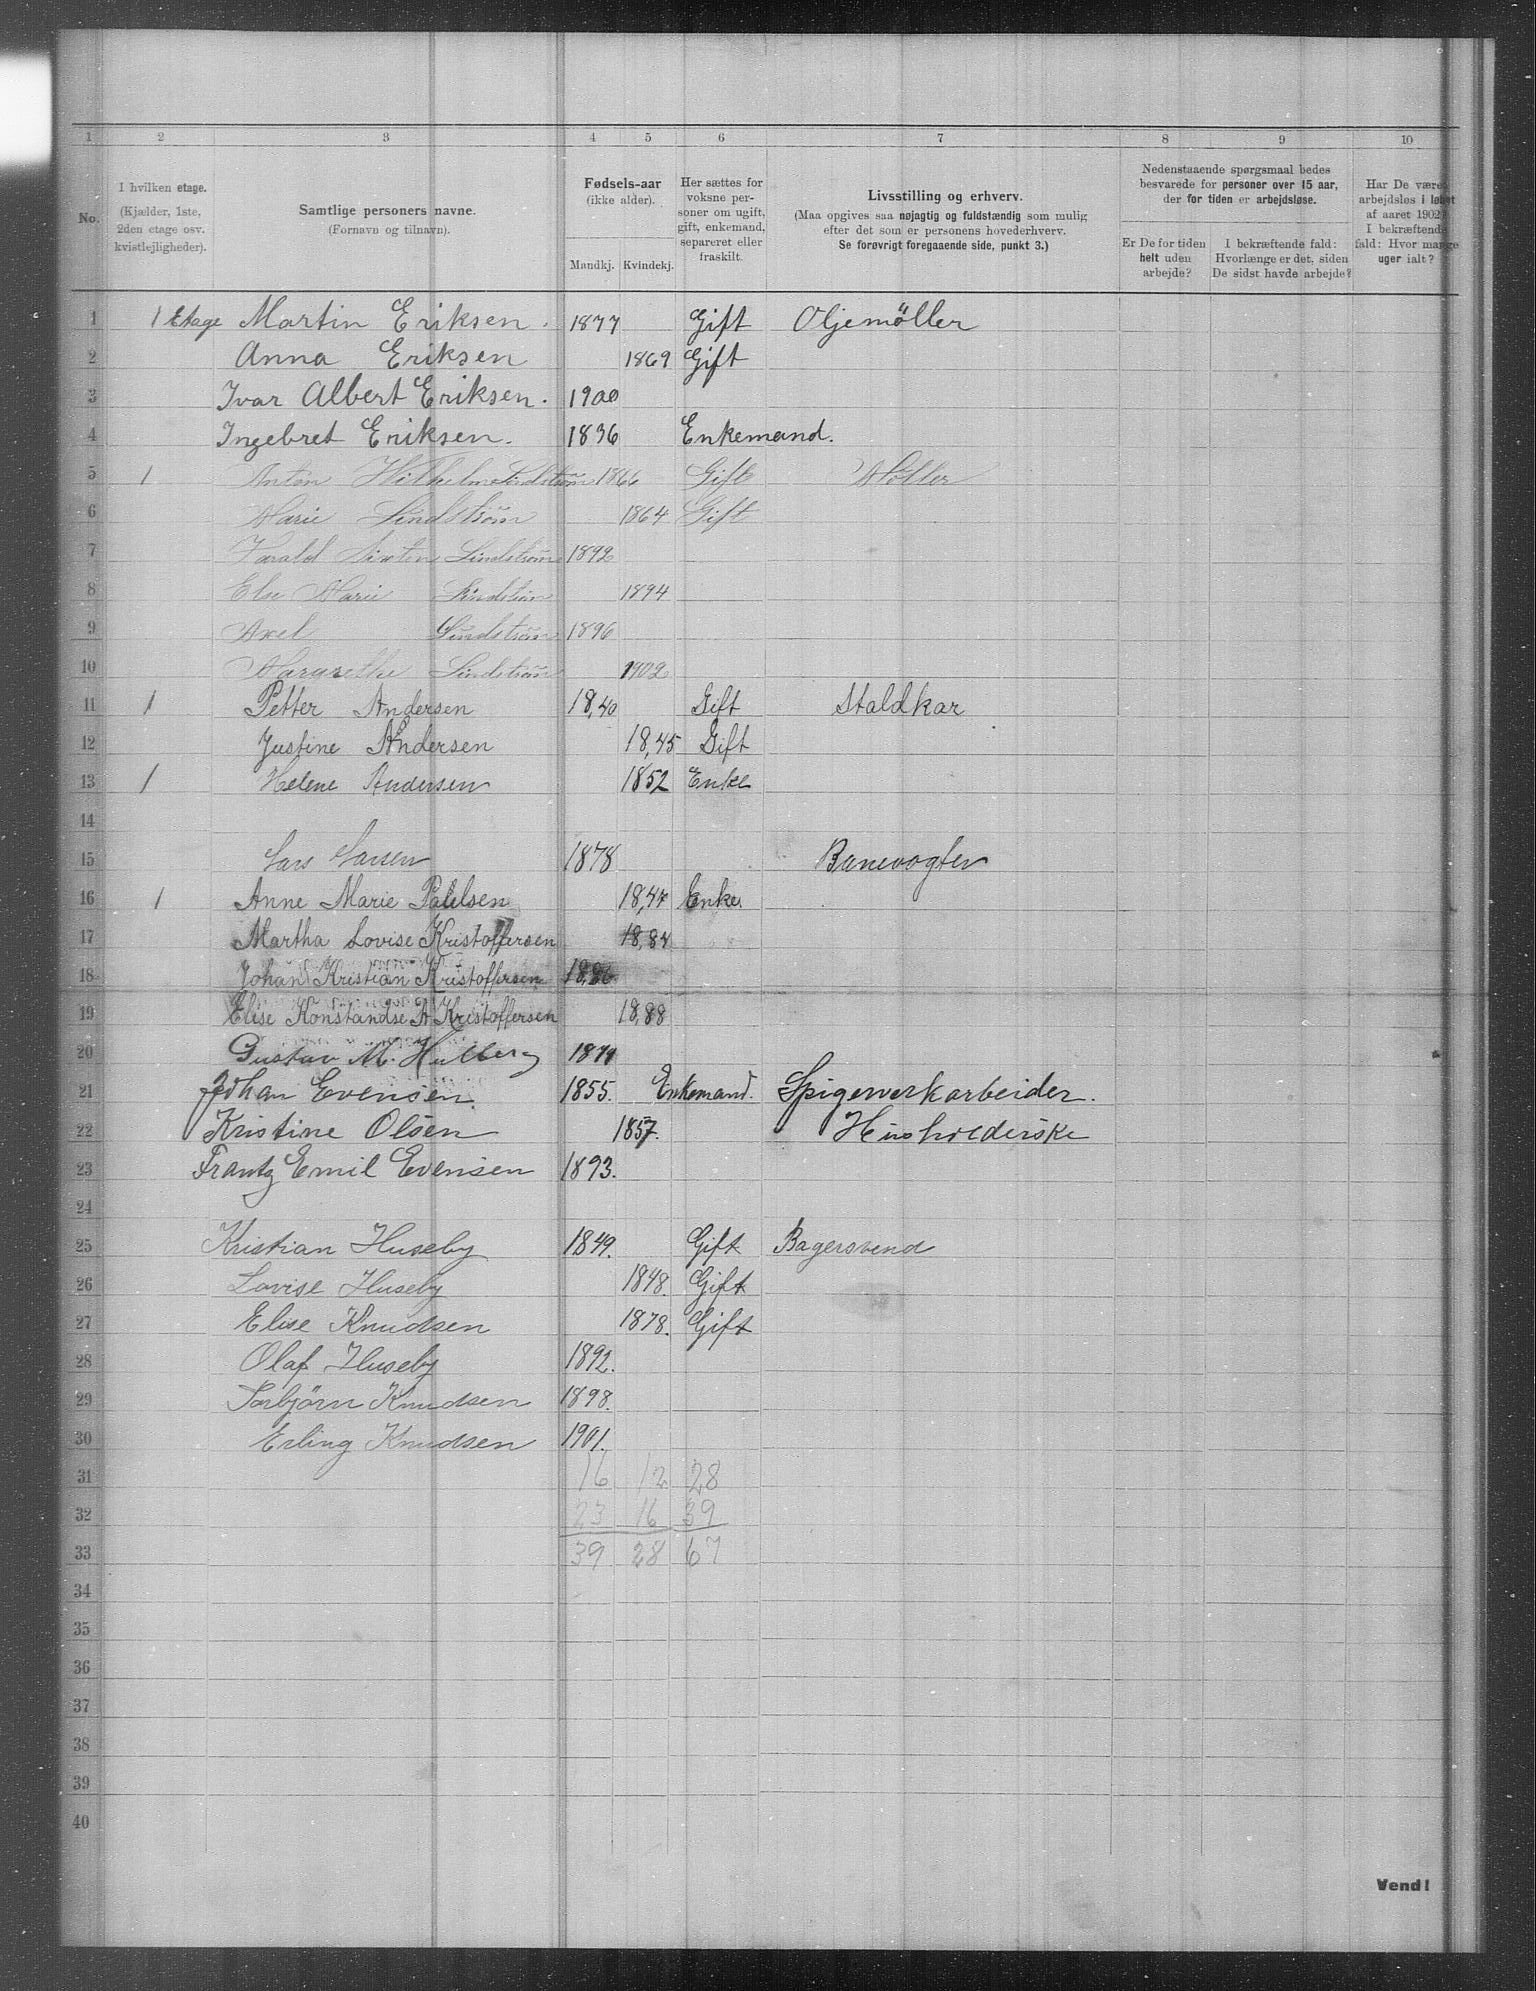 1 2 3 4 5 6 7 8 9 10
No.
I hvilken etage.
(Kjælder, 1ste,
2den etage osv.
kvistlejligheder).
Samtlige personers navne.
(Fornavn og tilnavn).
Fødsels-aar
(ikke alder).
Mandkj. Kvindekj.
Her sættes for
voksne per-
soner om ugift,
gift, enkemand,
separeret eller
fraskilt.
Livsstilling og erhverv.
(Maa opgives saa nøjagtig og fuldstændig som mulig
efter det som er personens hovederhverv.
Se forøvrigt foregaaende side, punkt 3.)
Nedenstaaende spørgsmaal bedes
besvarede for personer over 15 aar,
der for tiden er arbejdsløse.
Er De for tiden
helt uden
arbejde?
I bekræftende fald:
Hvorlænge er det, siden
De sidst havde arbejde?
Har De været
arbejdsløs i løbet
af aaret 1902?
I bekræftende
fald: Hvor mange
uger ialt?
1 1 Etage Martin Eriksen. 1877 Gift Oljemöller
2 Anna Eriksen 1869 Gift
3 Ivar Albert Eriksen. 1900
4 Ingebret Eriksen. 1836 Enkemand.
5 1 Anton Wilhelm Lindström 1866 Gift Møller
6 Marie Lindström 1864 Gift
7 Harald Lindström 1892
8 Else Marie Lindström 1894
9 Axel Lindström 1896
10 Margrethe Lindström 1902
11 1 Petter Andersen 18,40 Gift Staldkar
12 Justine Andersen 18,45 Gift
13 1 Helene Andersen 1852 Enke
14
15 Lars Larsen 1878 Banevogter
16 1 Anne Marie Paulsen 18,47 Enke.
17 Martha Lovise Kristoffersen 18,84
18 Johan Kristian Kristoffersen 18,86
19 Elise Konstandse A Kristoffersen 18,88
20 Gustav M. Hulberg
21 Johan Evensen. 1855. Enkemand. Spigerverkarbeider.
22 Kristine Olsen 1857. Husholderske
23 Frantz Emil Evensen 1893.
24
25 Kristian Huseby 1849. Gift Bagersvend
26 Lovise Huseby 1848. Gift
27 Elise Knudsen 1878. Gift
28 Olaf Huseby 1892.
29 Torbjörn Knudsen 1898.
30 Erling Knudsen 1901.
31 16 12 28
32 23 16 39
33 39 28 67
34
35
36
37
38
39
40
Vend!